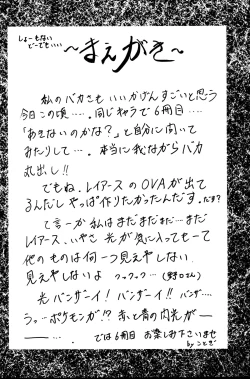 しょーもない
どーでもいい
～まえがき～
私のバカさも いいかげんすごいと思う
今日この頃‥‥。同じネタで6冊目‥‥
「あきないのかな?」と自分に聞いて
みたりして‥‥。本当に我ながらバカ
丸出し!!
でもね。レイアースのOVAが出て
るんだし やっぱ作りたかったんだす。だす?
て言ーか 私はまだまだまだ‥‥まだ
レイアース、いやさ 光が気に入ってもーて
他のものは何一つ見えやしない
見えやしないよ クックックッ‥‥
光バンザーイ! バンザーイ!! バンザ‥‥
う。‥ポケモンが!? 赤と青の閃光が―
―‥‥。 では6冊目 お楽しみ下さいませ
by ことぎ